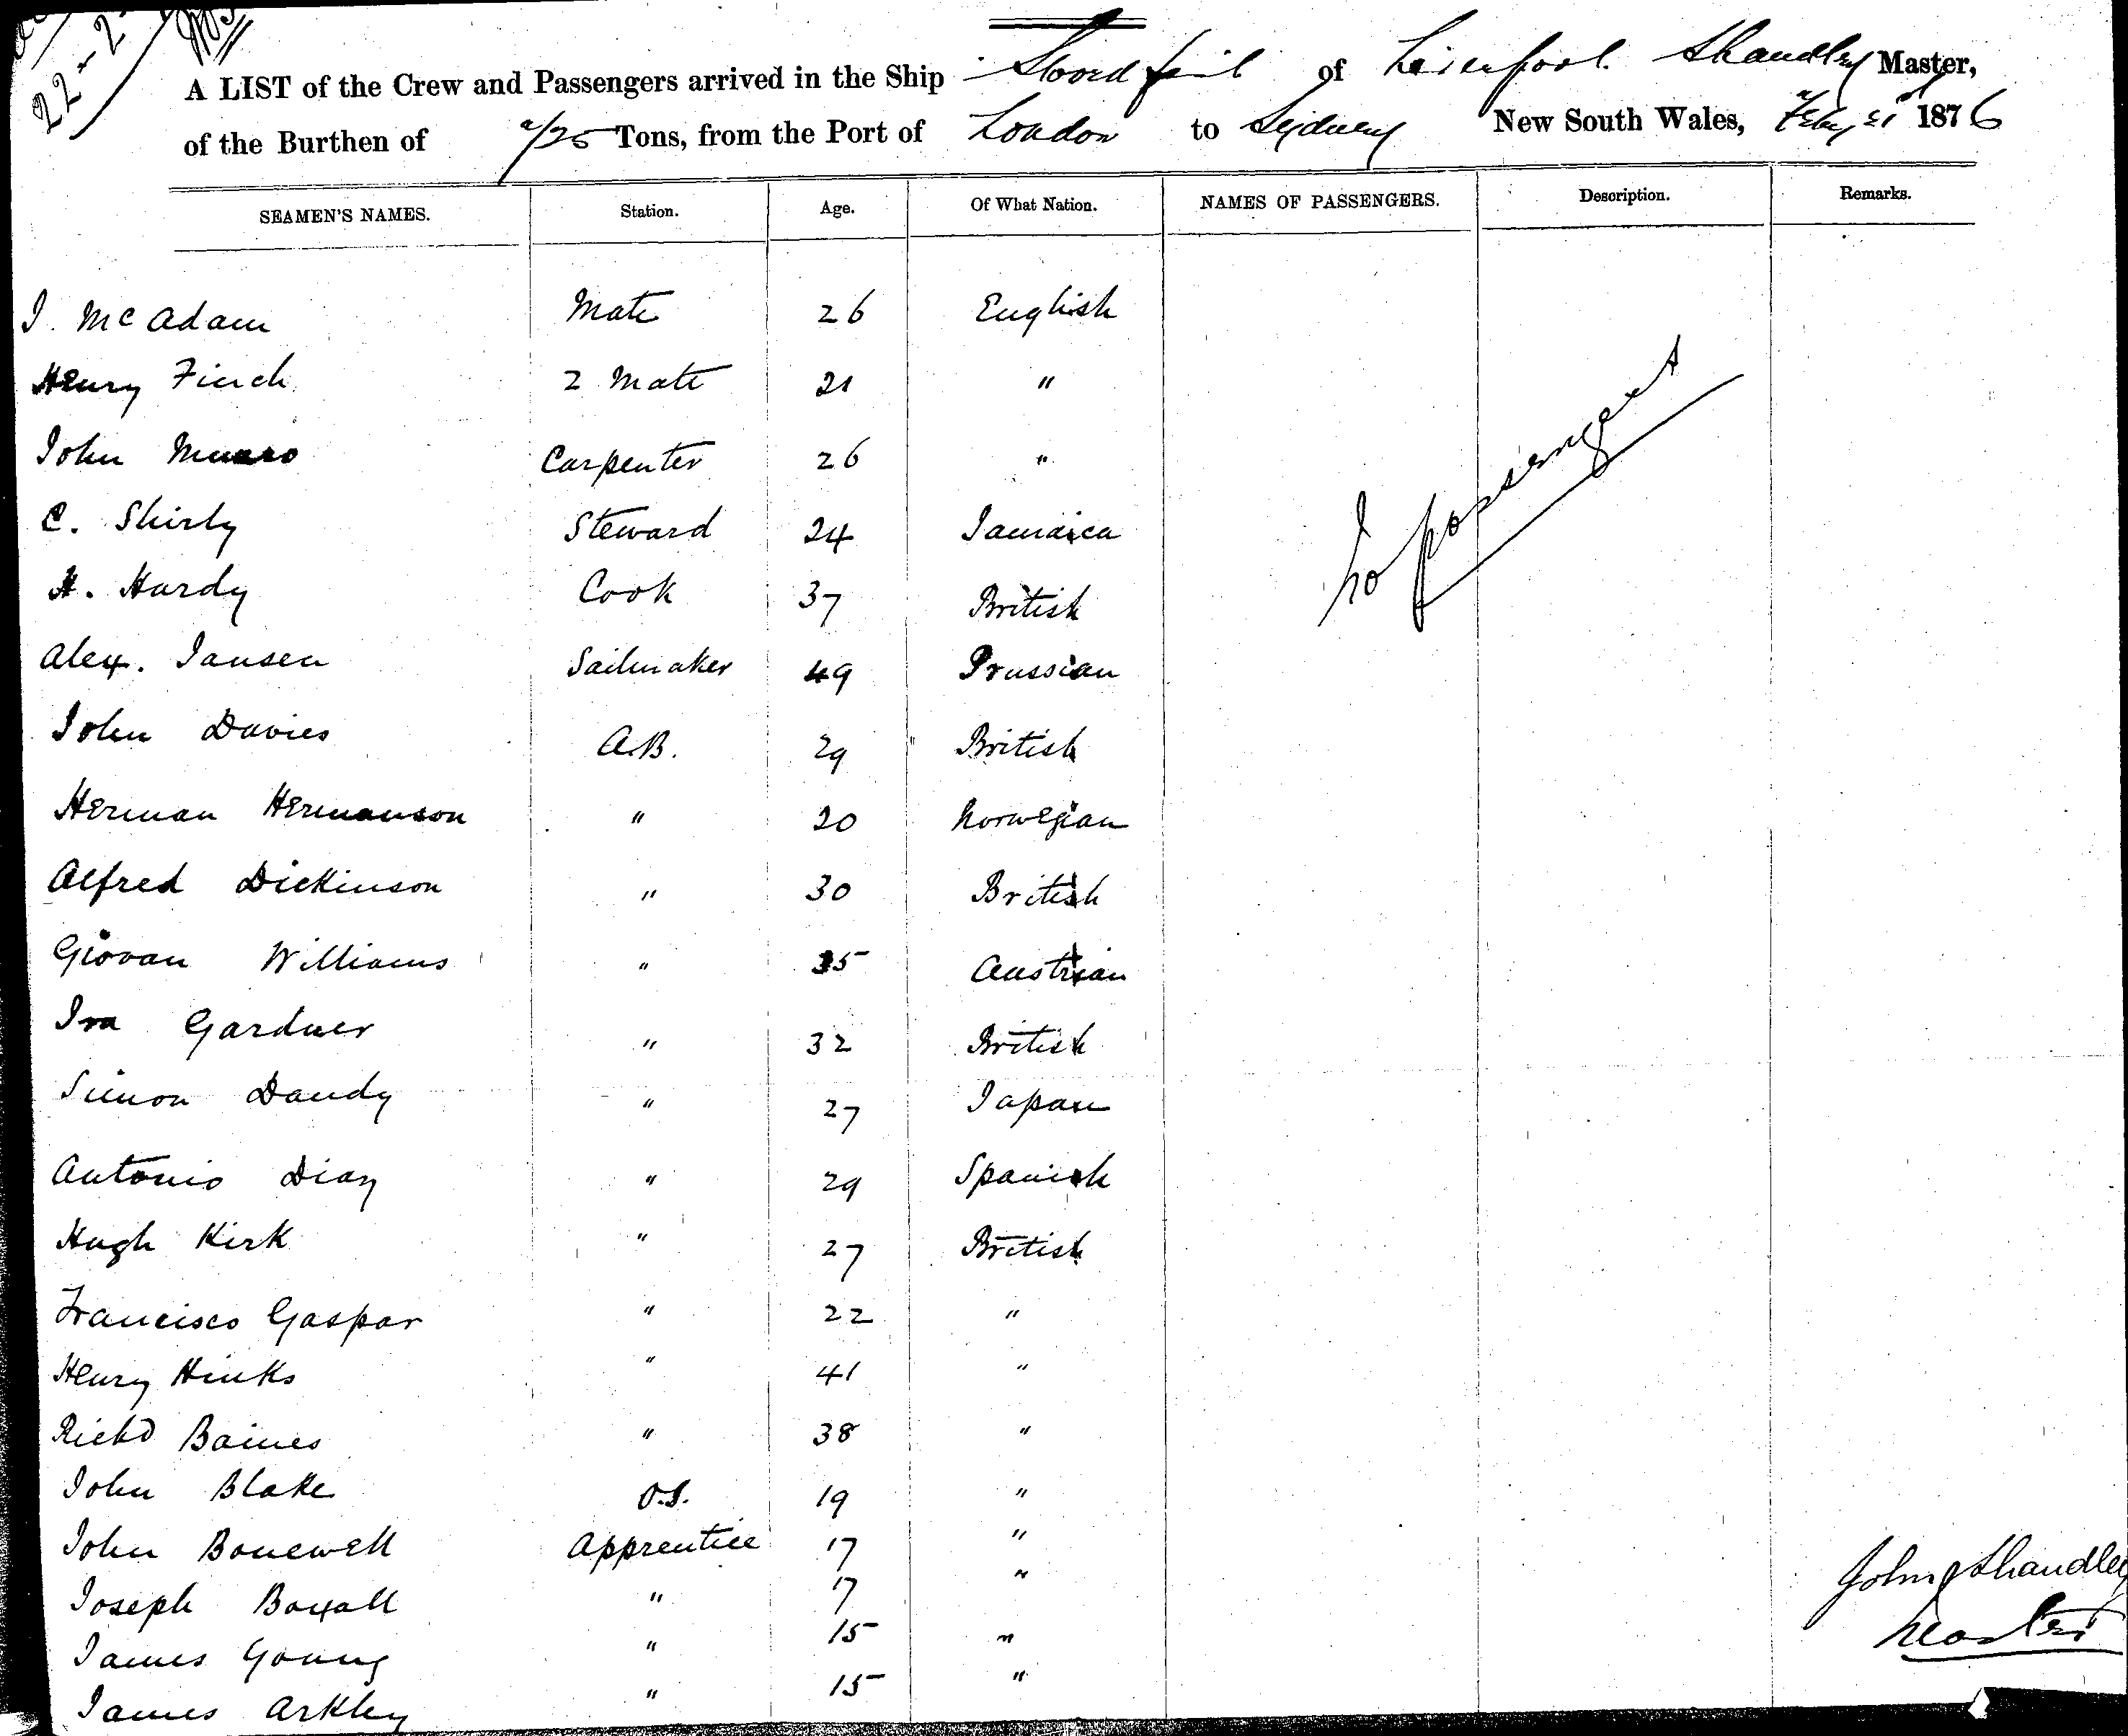 22-2
A LIST of the Crew and Passengers arrived in the Ship of Liverpool Shandley Master,
of the Burthen of Tons, from the Port of London to Sydney New South Wales, Feby 21 1876
SEAMEN'S NAMES. Station. Age. Of What Nation. NAMES OF PASSENGERS. Description. Remarks.
J. McAdam Mate 26 English
Henry Finch 2 Mate 21 "
John Munro Carpenter 26 "
C. Shirly Steward 24 Jamaica
H. Hardy Cook 37 British
no passengers
Alex. Jansen Sailmaker 49 Prussian
John Davies A.B. 29 British
Herman Hermanson " 20 Norwegian
Alfred Dickinson " 30 British
Giovan Williams " 35 Austrian
Ira Gardner " 32 British
Simon Dandy " 27 Japan
Antonio Diaz " 29 Spanish
Hugh Kirk " 27 British
Francisco Gaspar " 22 "
Henry Hinks " 41 "
Richd Baines " 38 "
John Blake O.S. 19 "
John Bonewell Apprentice 17 "
Joseph Boxall " 17 "
James Young " 15 "
James Arkley " 15 "
John Shandley
Master